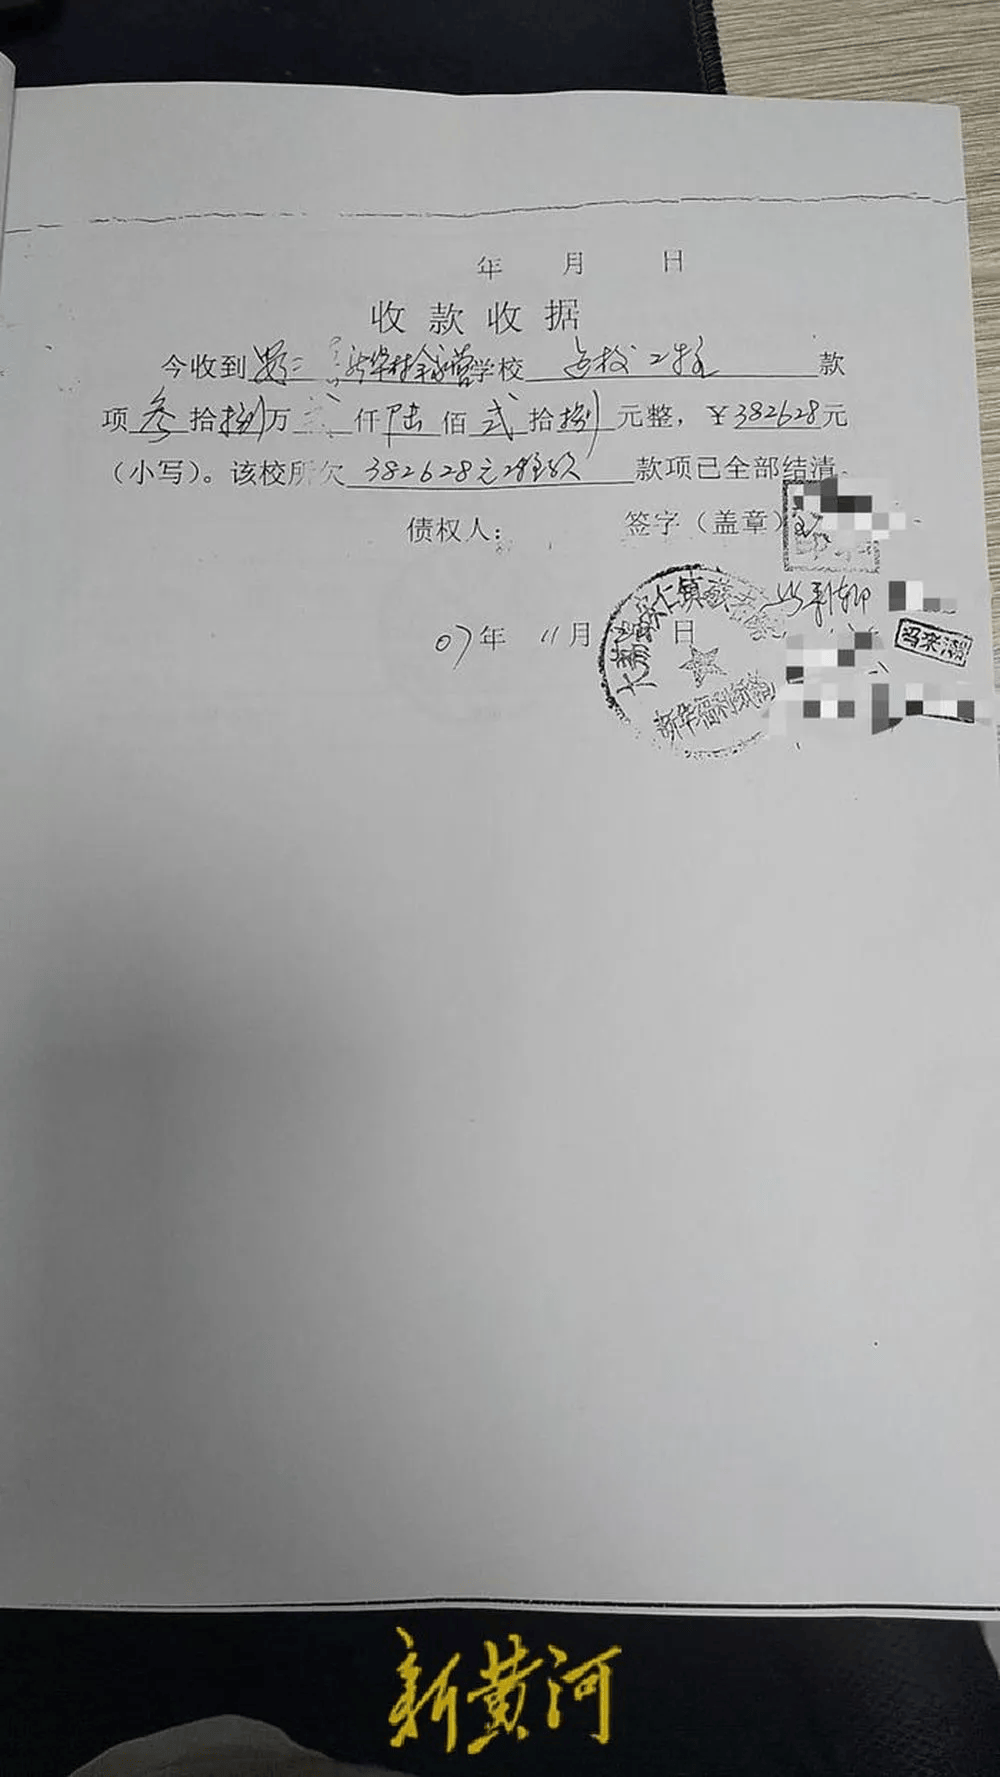 年 月 日
收款收据
今收到 新华村余家营学校 建校工程 款
项叁拾捌万贰仟陆佰贰拾捌元整，￥382628元
（小写）。该校所欠 382628元 款项已全部结清。
债权人： 签字（盖章）
07年 11月 日
新华福利
冯来潮
新黄河